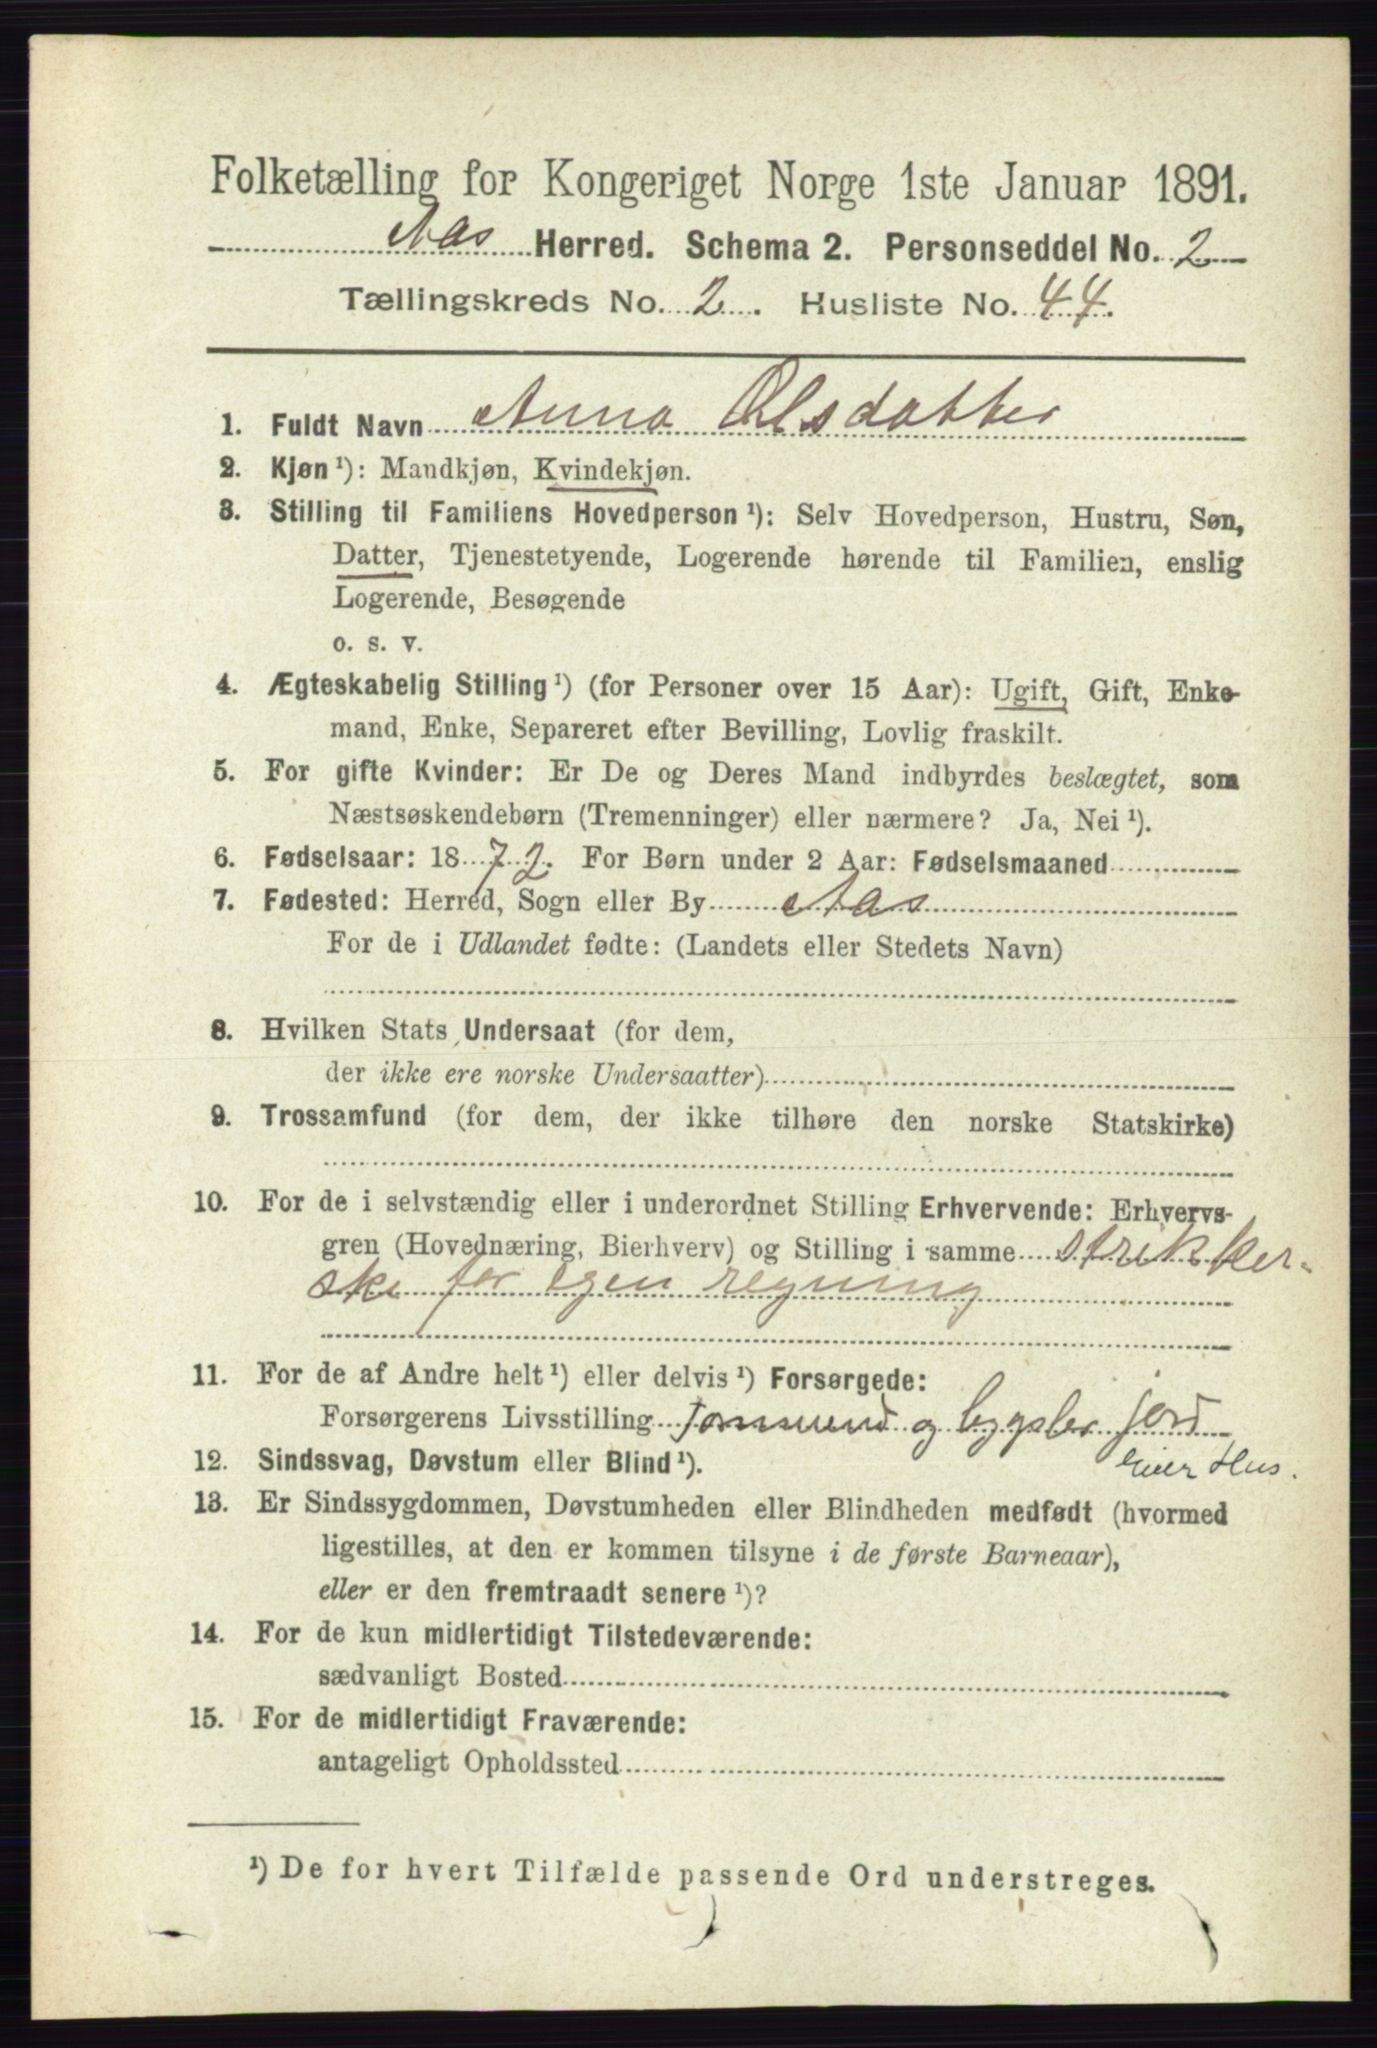 Folketælling for Kongeriget Norge 1ste Januar 1891.
Aas Herred. Schema 2. Personseddel No. 2
Tællingskreds No. 2. Husliste No. 44.
1. Fuldt Navn Anna Olsdatter
2. Kjøn ¹): Mandkjøn, Kvindekjøn.
3. Stilling til Familiens Hovedperson ¹): Selv Hovedperson, Hustru, Søn,
Datter, Tjenestetyende, Logerende hørende til Familien, enslig
Logerende, Besøgende
o. s. v.
4. Ægteskabelig Stilling ¹) (for Personer over 15 Aar): Ugift, Gift, Enke-
mand, Enke, Separeret efter Bevilling, Lovlig fraskilt.
5. For gifte Kvinder: Er De og Deres Mand indbyrdes beslægtet, som
Næstsøskendebørn (Tremenninger) eller nærmere? Ja, Nei ¹).
6. Fødselsaar: 1872. For Børn under 2 Aar: Fødselsmaaned
7. Fødested: Herred, Sogn eller By Aas
For de i Udlandet fødte: (Landets eller Stedets Navn)
8. Hvilken Stats Undersaat (for dem,
der ikke ere norske Undersaatter)
9. Trossamfund (for dem, der ikke tilhøre den norske Statskirke)
10. For de i selvstændig eller i underordnet Stilling Erhvervende: Erhvervs-
gren (Hovednæring, Bierhverv) og Stilling i samme strikker-
ske for egen regning
11. For de af Andre helt ¹) eller delvis ¹) Forsørgede:
Forsørgerens Livsstilling Tømmermd og bygsler jord
Eier Hus.
12. Sindssvag, Døvstum eller Blind ¹).
13. Er Sindssygdommen, Døvstumheden eller Blindheden medfødt (hvormed
ligestilles, at den er kommen tilsyne i de første Barneaar),
eller er den fremtraadt senere ¹)?
14. For de kun midlertidigt Tilstedeværende:
sædvanligt Bosted
15. For de midlertidigt Fraværende:
antageligt Opholdssted
¹) De for hvert Tilfælde passende Ord understreges.